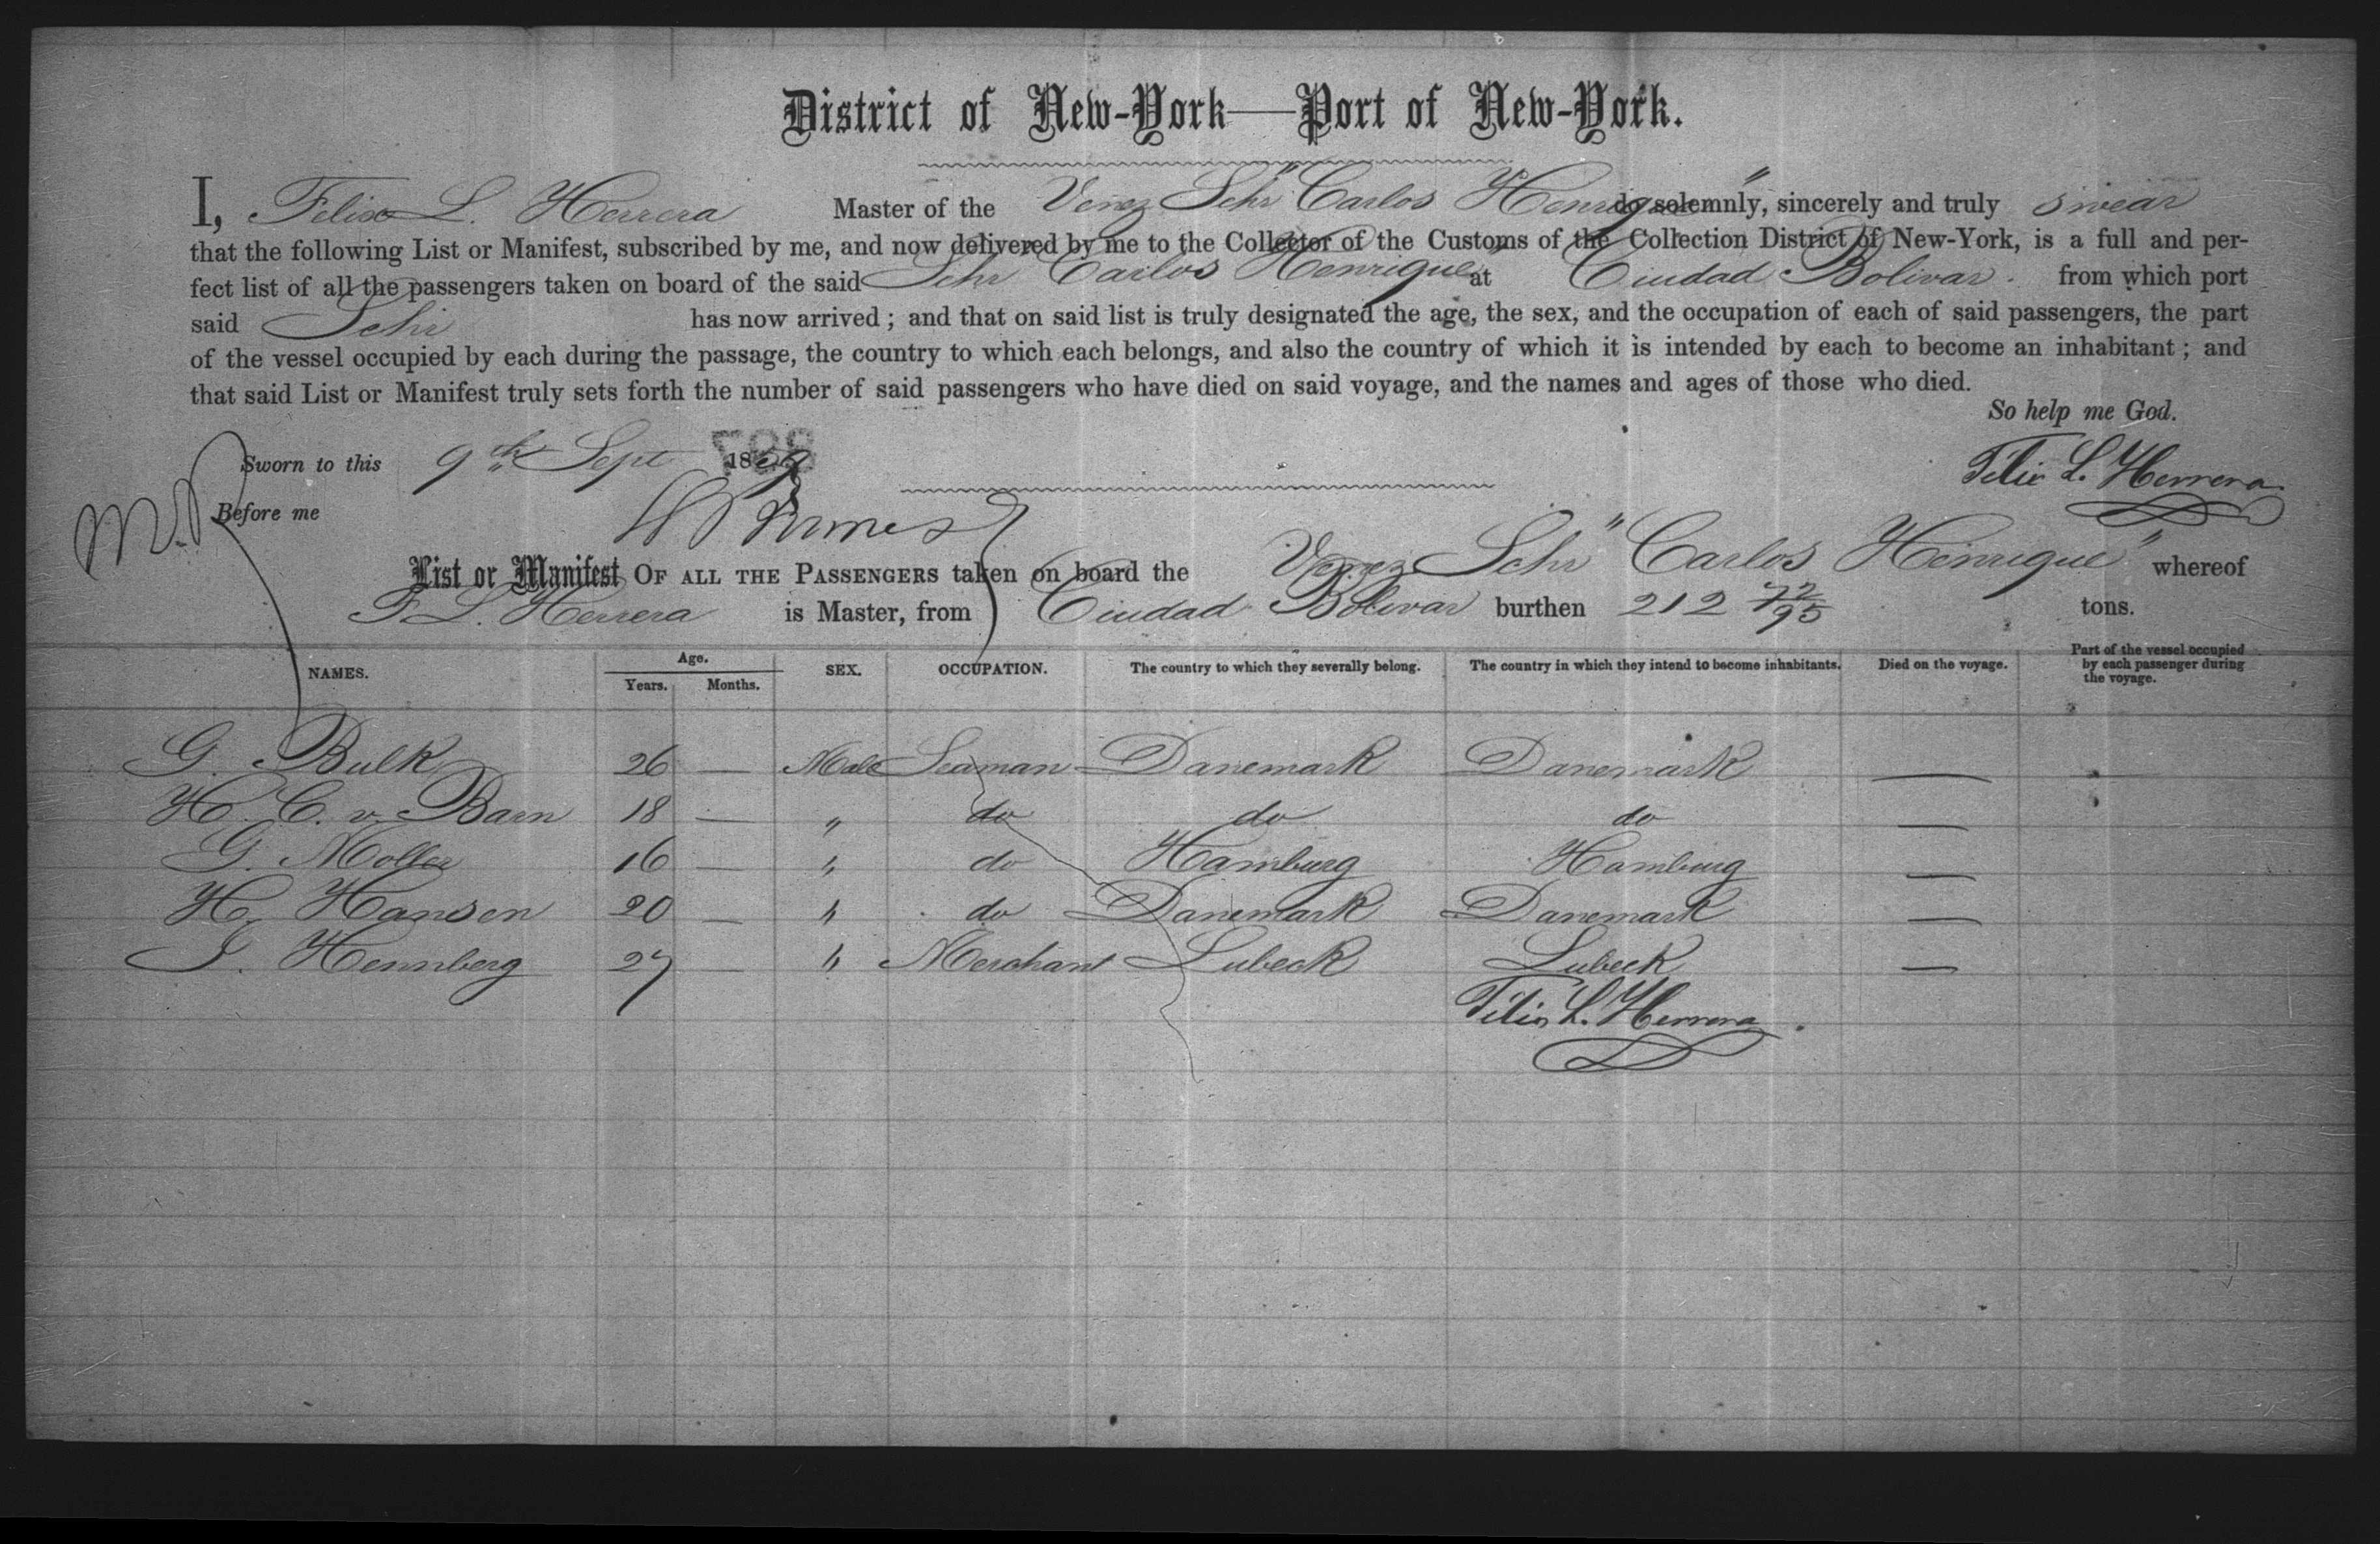 District of New-York—Port of New-York.
I, Felix L. Herrera Master of the Venez Schr "Carlos Henrique" do solemnly, sincerely and truly swear
that the following List or Manifest, subscribed by me, and now delivered by me to the Collector of the Customs of the Collection District of New-York, is a full and per-
fect list of all the passengers taken on board of the said Schr "Carlos Henrique" at Ciudad Bolivar. from which port
said Schr has now arrived; and that on said list is truly designated the age, the sex, and the occupation of each of said passengers, the part
of the vessel occupied by each during the passage, the country to which each belongs, and also the country of which it is intended by each to become an inhabitant; and
that said List or Manifest truly sets forth the number of said passengers who have died on said voyage, and the names and ages of those who died.
So help me God.
Sworn to this 9th Sept 1859
Felix L. Herrera
Before me
List or Manifest OF ALL THE PASSENGERS taken on board the Venez Schr "Carlos Henrique" whereof
F. L. Herrera is Master, from Ciudad Bolivar burthen 212 72/95 tons.
NAMES. Age. Years. Months. SEX. OCCUPATION. The country to which they severally belong. The country in which they intend to become inhabitants. Died on the voyage. Part of the vessel occupied by each passenger during the voyage.
G. Bulk 26 — Male Seaman Danemark Danemark —
H. C. v. Barn 18 — " do do do —
G. Moller 16 — " do Hamburg Hamburg —
H. Hansen 20 — " do Danemark Danemark —
J. Hennberg 27 — " Merchant Lubeck Lubeck —
Felix L. Herrera